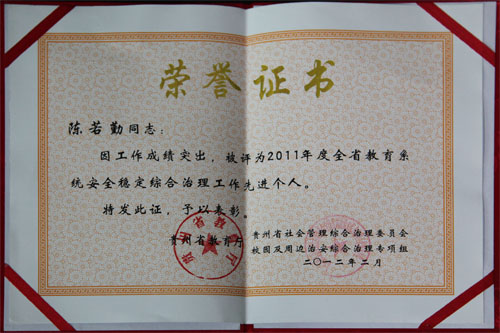 荣誉证书
陈若勤同志：
因工作成绩突出，被评为2011年度全省教育系
统安全稳定综合治理工作先进个人。
特发此证，予以表彰。
贵州省教育厅
贵州省社会管理综合治理委员会
校园及周边治安综合治理专项组
二〇一二年二月